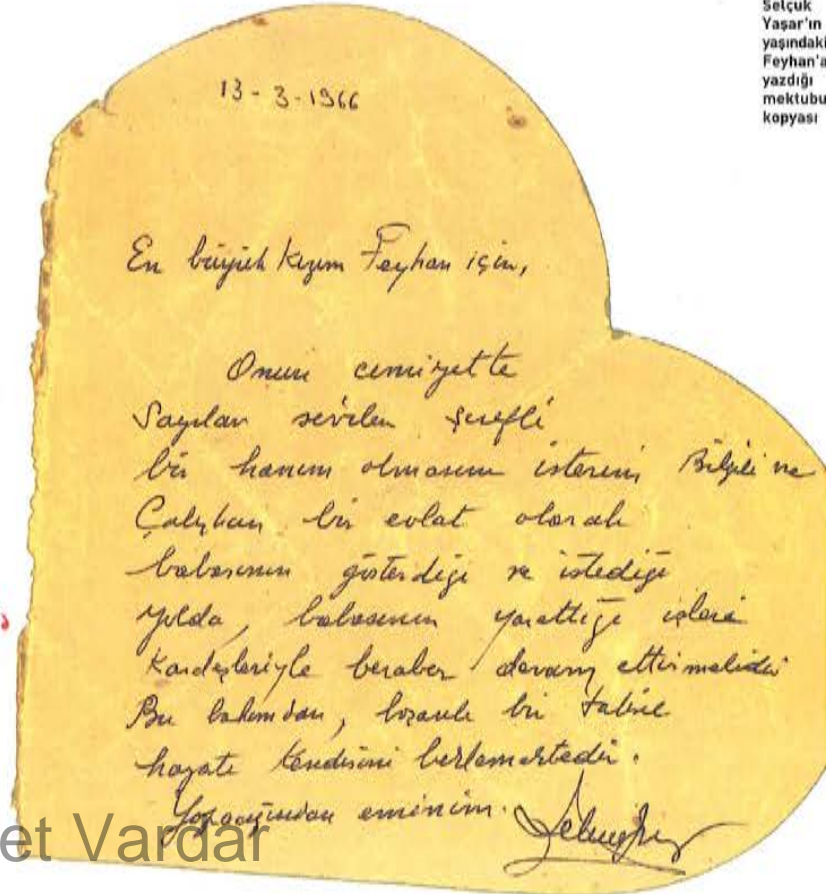 Selçuk
Yaşar'ın
yaşındaki
Feyhan'a
yazdığı
mektubu
kopyası
13 - 3 - 1966
En büyük kızım Feyhan için,
Onun cemiyette
Sayılan sevilen şerefli
bir hanım olmasını isterim Bilgili ve
Çalışkan bir evlat olarak
babasının gösterdiği ve istediği
yolda, babasının yarattığı işleri
Kardeşleriyle beraber devam ettirmelidir
Bu bakımdan, başarılı bir tahsil
hayatı kendisini beklemektedir.
Yapacağından eminim.
et Vardar